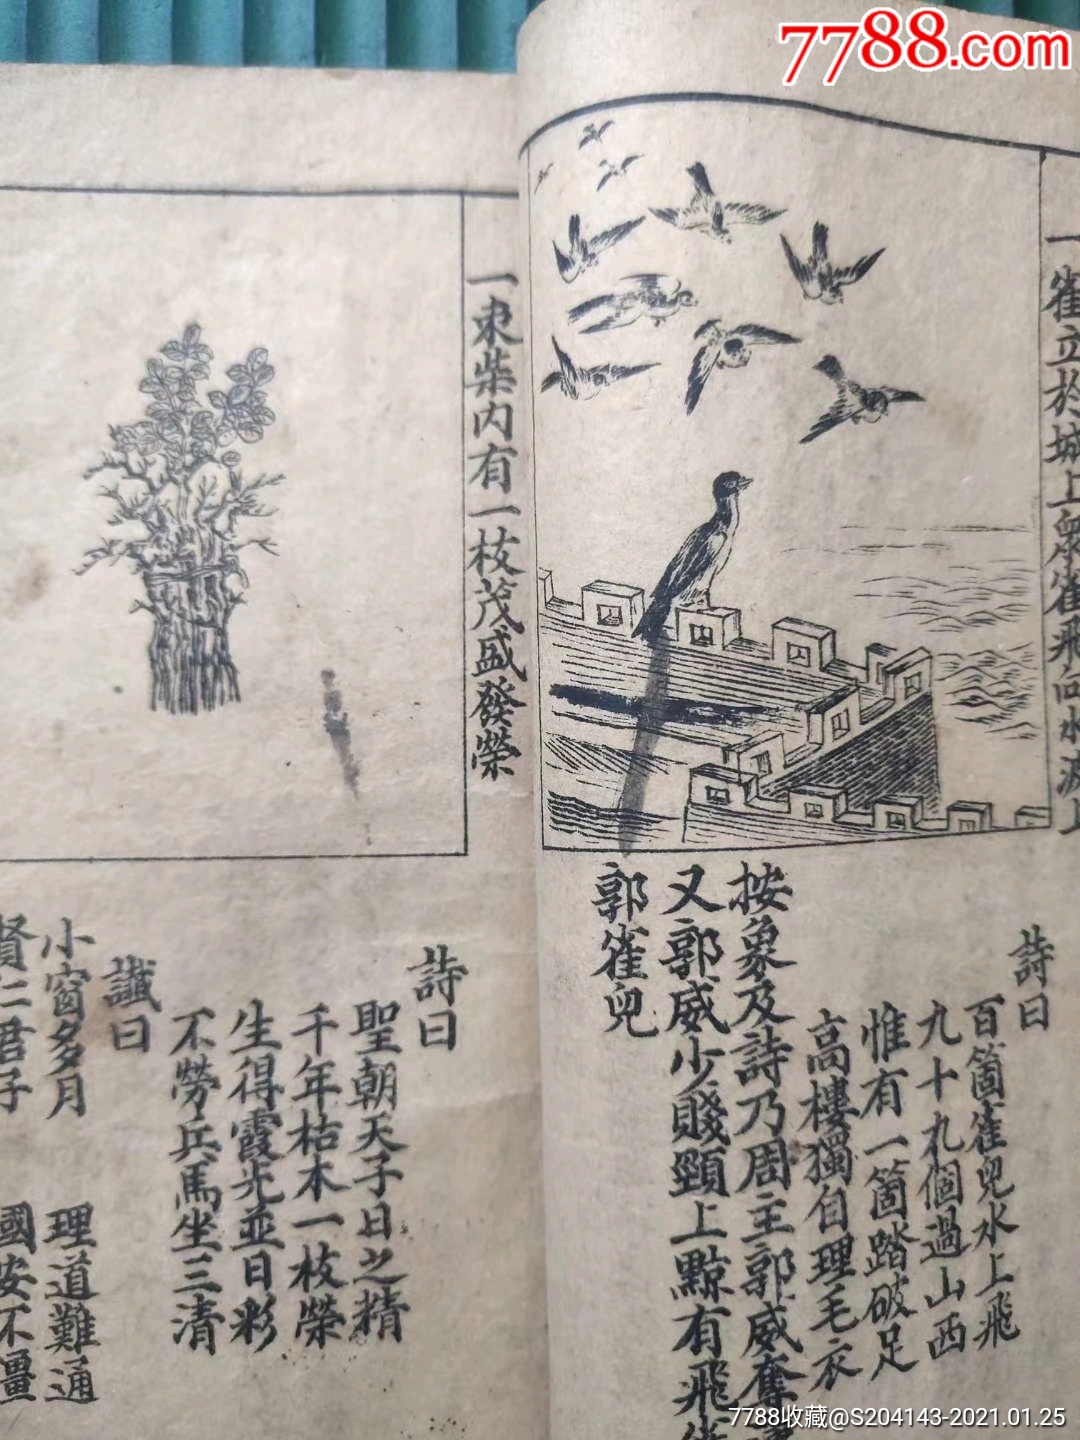 7788.com
一雀立於城上衆雀飛向水波上
詩曰
百箇雀兒水上飛
九十九個過山西
惟有一箇踏破足
高樓獨自理毛衣
按象及詩乃周主郭威奪
又郭威少賤頸上黥有飛雀
郭雀兒
一束柴內有一枝茂盛發榮
詩曰
聖朝天子日之精
千年枯木一枝榮
生得霞光並日彩
不勞兵馬坐三清
讖曰
小窗多月 理道難通
賢仁君子 國安不畺
7788收藏@S204143-2021.01.25